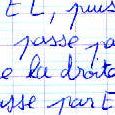 EL, puis
passe pa
e la droite
asse par E